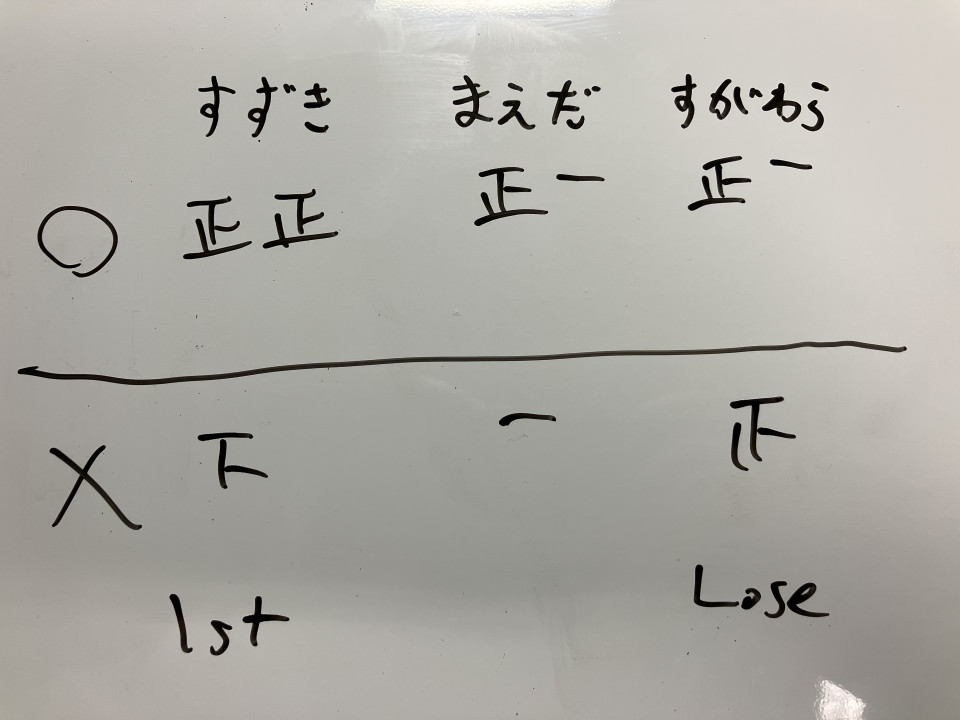 すずき まえだ すがわら
○ 正正 正一 正一
× 下 一 止
1st Lose